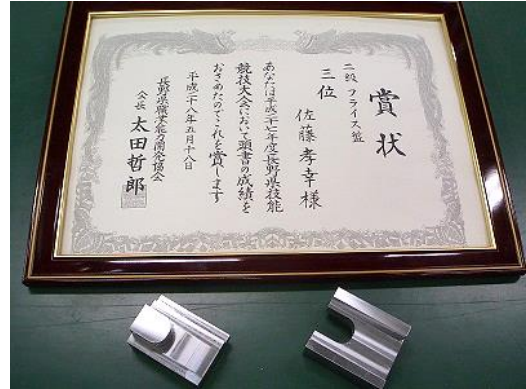 賞状
二級 フライス盤
三位
佐藤孝幸様
あなたは平成二十七年度長野県技能
競技大会において頭書の成績を
おさめたのでこれを賞します
平成二十八年五月十八日
長野県職業能力開発協会
会長 太田哲郎